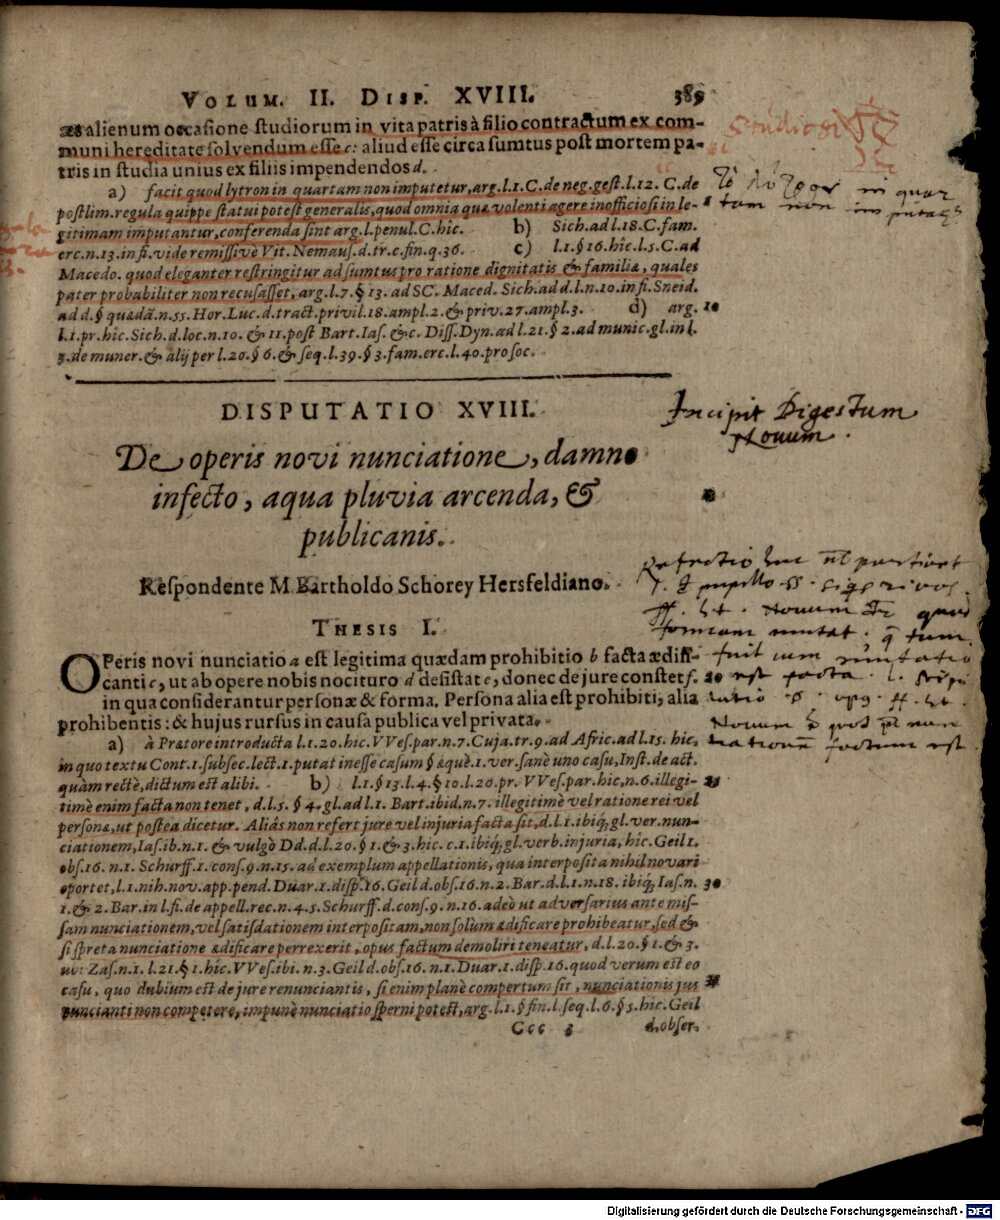 VOLUM. II. DISP. XVIII. 389
æs alienum occasione studiorum in vita patris à filio contractum ex com-
muni hereditate solvendum esse c: aliud esse circa sumtus post mortem pa-
tris in studia unius ex filiis impendendos d.
a) facit quod lytron in quartam non imputetur, arg. l. 1. C. de neg. gest. l. 12. C. de
postlim. regula quippe statui potest generalis, quod omnia quæ volenti agere inofficiosi in le-
gitimam imputantur, conferenda sint arg. l. penul. C. hic. b) Sich. ad l. 18. C. fam.
erc. n. 13. in fi. vide remissivè Vit. Nemaus. d. tr. c. fin. q. 36. c) l. 1. § 16. hîc. l. 5. C. ad
Macedo. quod eleganter restringitur ad sumtus pro ratione dignitatis & familiæ, quales
pater probabiliter non recusasset, arg. l. 7. § 13. ad SC. Maced. Sich. ad d. l. n. 10. in fi. Sneid.
ad d. § quædã. n. 55. Hor. Luc. d. tract. privil. 18. ampl. 2. & priv. 27. ampl. 3. d) arg. 10
l. 1. pr. hîc. Sich. d. loc. n. 10. & 11. post Bart. Ias. & c. Diss. Dyn. ad l. 21. § 2. ad munic. gl. in l.
3. de muner. & alij per l. 20. § 6. & seq. l. 39. § 3. fam. erc. l. 40. pro soc.
DISPUTATIO XVIII.
Incipit Digestum
Novum.
De operis novi nunciatione, damno
infecto, aqua pluvia arcenda, &
publicanis.
Respondente M. Bartholdo Schorey Hersfeldiano.
THESIS I.
OPeris novi nunciatio a est legitima quædam prohibitio b facta ædifi-
canti c, ut ab opere nobis nocituro d desistat e, donec de jure constet f. 20
in qua considerantur personæ & forma. Persona alia est prohibiti, alia
prohibentis: & hujus rursus in causa publica vel privata.
a) à Prætore introducta l. 1. 20. hic. VVes. par. n. 7. Cuja. tr. 9. ad Afric. ad l. 15. hic.
in quo textu Cont. 1. subsec. lect. 1. putat inesse casum § æquè. 1. ver. sanè uno casu, Inst. de act.
quàm rectè, dictum est alibi. b) l. 1. § 13. l. 4. § 10. l. 20. pr. VVes. par. hîc, n. 6. illegi- 25
timè enim facta non tenet, d. l. 5. § 4. gl. ad l. 1. Bart. ibid. n. 7. illegitimè vel ratione rei vel
personæ, ut postea dicetur. Aliàs non refert jure vel injuria facta sit, d. l. 1. ibiq; gl. ver. nun-
ciationem, Ias. ib. n. 1. & vulgò Dd. d. l. 20. § 1. & 3. hic. c. 1. ibiq; gl. verb. injuria, hîc. Geil 1.
obs. 16. n. 1. Schurff. 1. cons. 9. n. 15. ad exemplum appellationis, qua interposita nihil novari
oportet, l. 1. nih. nov. app. pend. Duar. 1. disp. 16. Geil d. obs. 16. n. 2. Bar. d. l. 1. n. 18. ibiq; Ias. n. 30
1. & 2. Bar. in l. fi. de appell. rec. n. 4. 5. Schurff. d. cons. 9. n. 16. adeò ut adversarius ante mis-
sam nunciationem, vel satisdationem interpositam, non solùm ædificare prohibeatur, sed &
si spreta nunciatione ædificare perrexerit, opus factum demoliri teneatur, d. l. 20. § 1. & 3.
ubi Zas. n. 1. l. 21. § 1. hîc. VVes. ibi. n. 3. Geil d. obs. 16. n. 1. Duar. 1. disp. 16. quod verum est eo
casu, quo dubium est de jure renunciantis, si enim planè compertum sit, nunciationis jus
nuncianti non competere, impunè nunciatio sperni potest, arg. l. 1. § fin. l. seq. l. 6. § 5. hic. Geil
Ccc 3 d. obser.
Digitalisierung gefördert durch die Deutsche Forschungsgemeinschaft - DFG